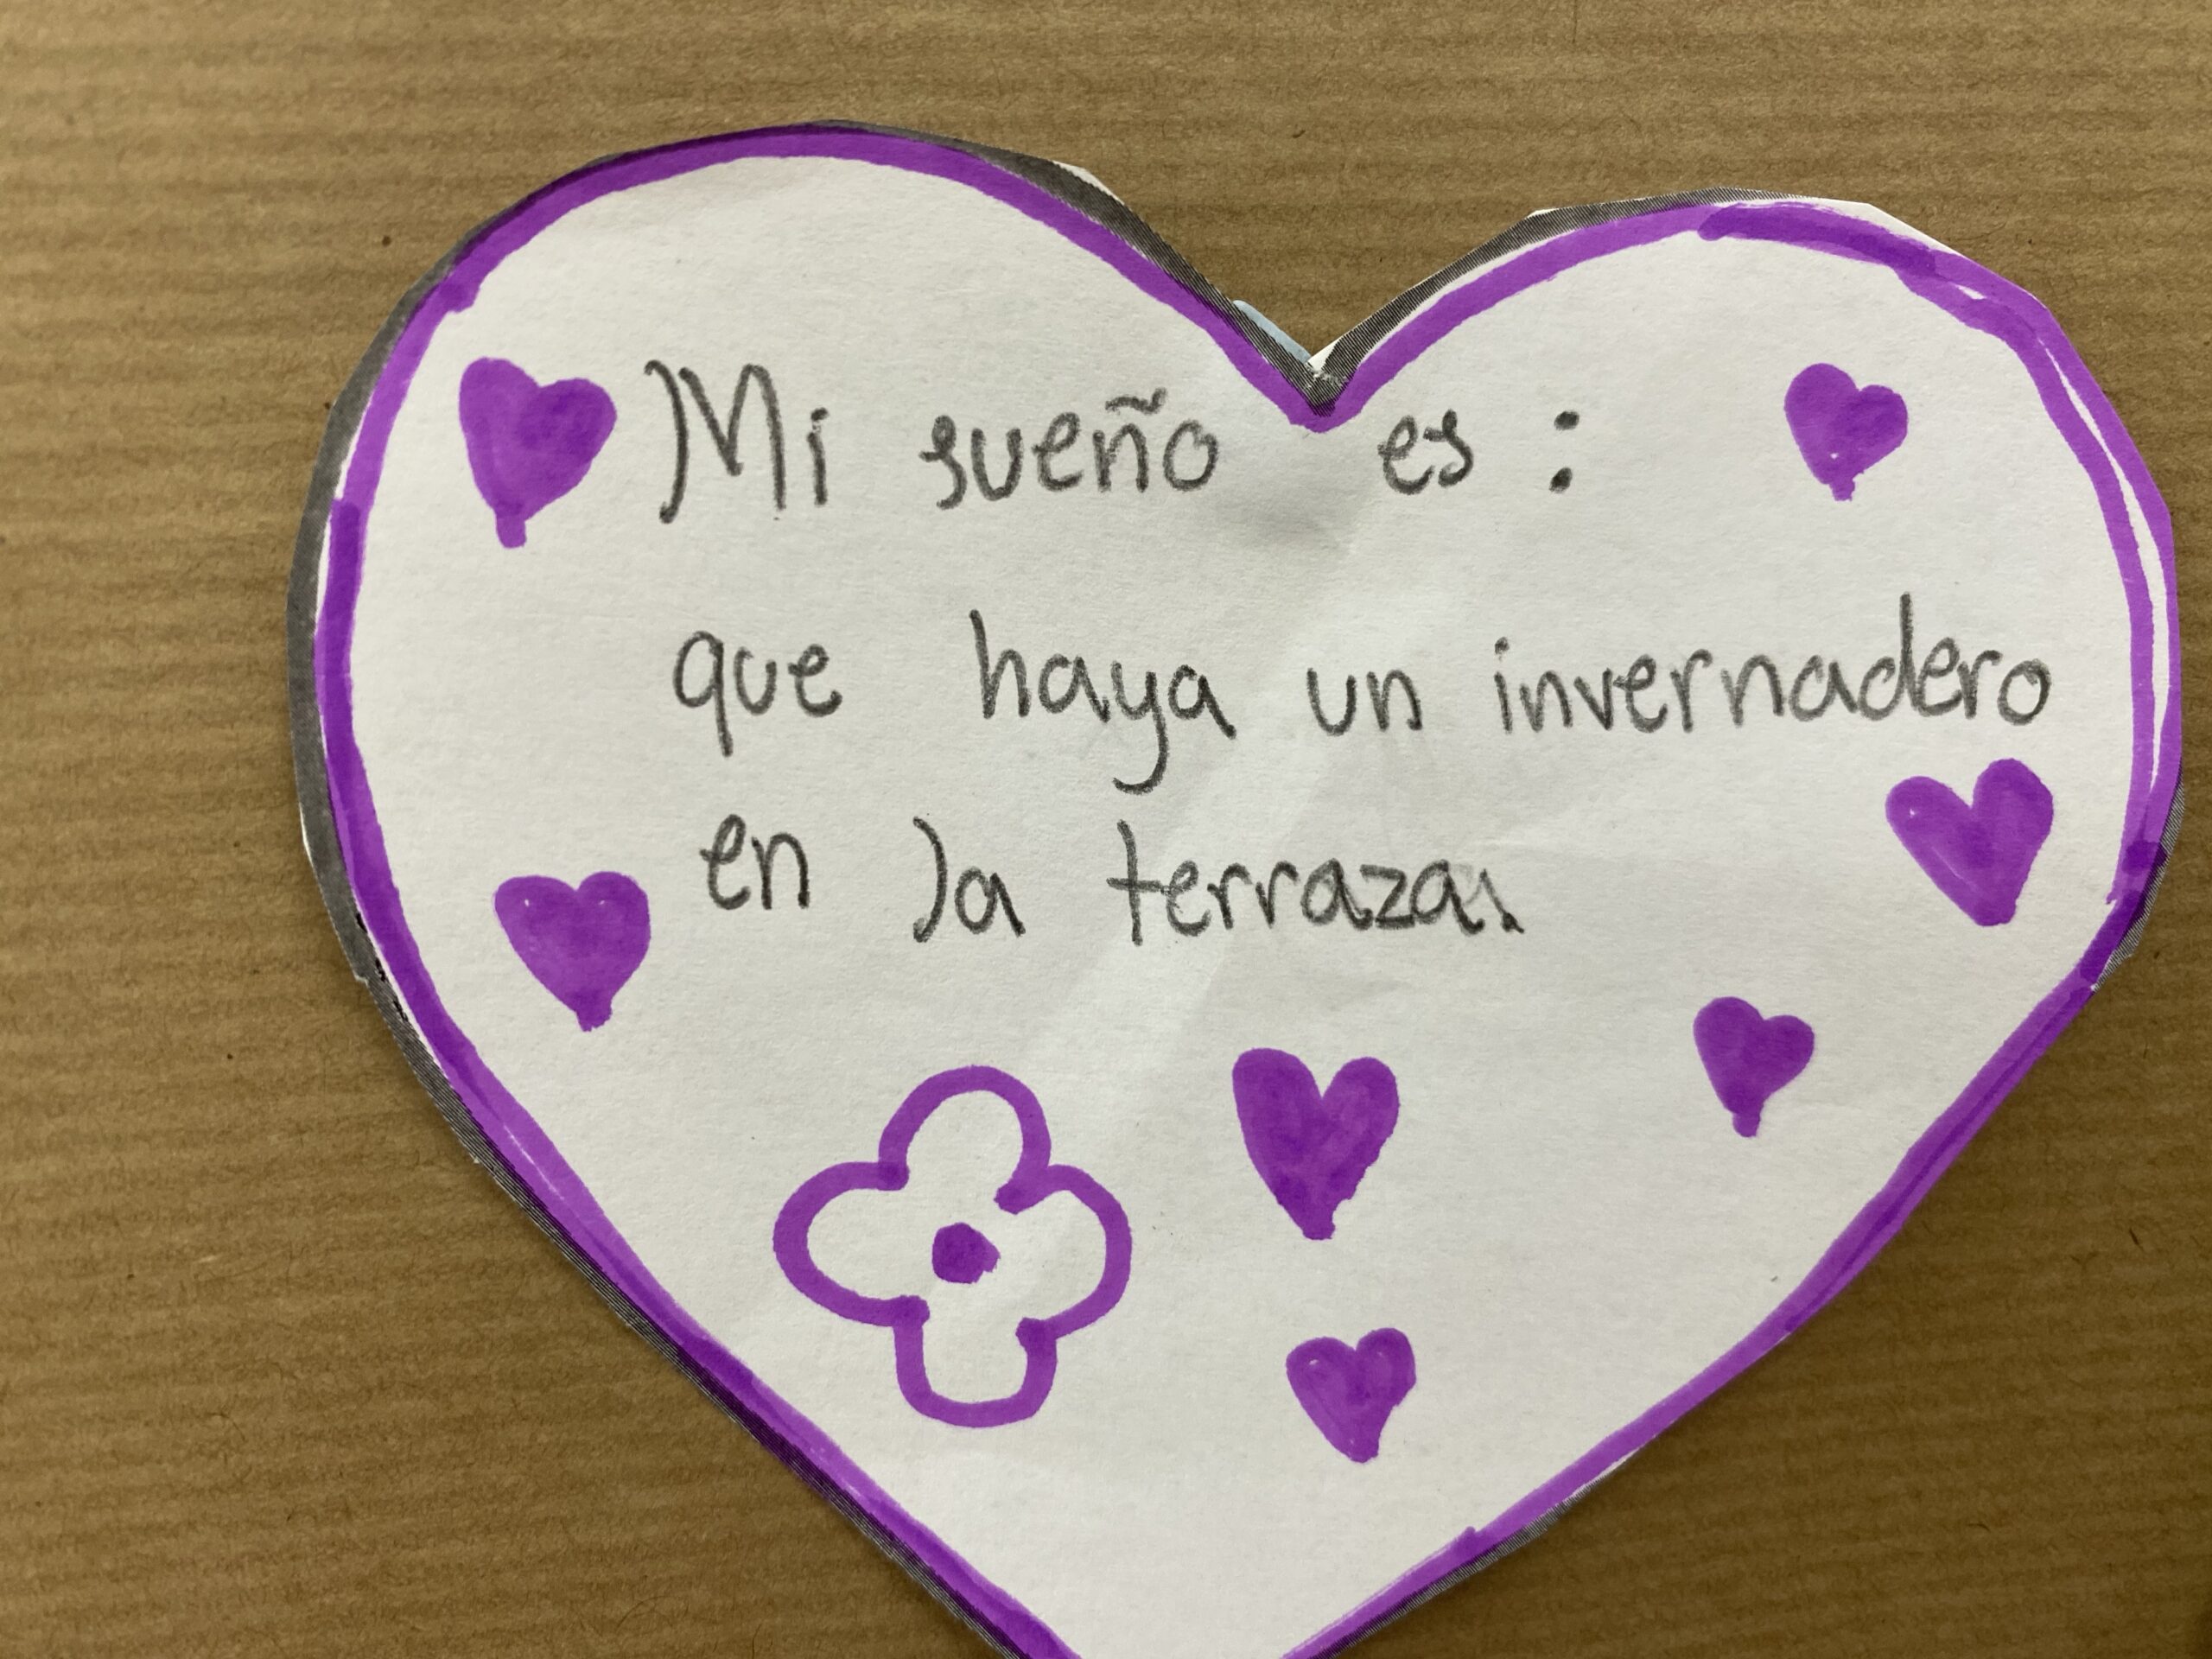 Mi sueño es:
que haya un invernadero
en la terraza.